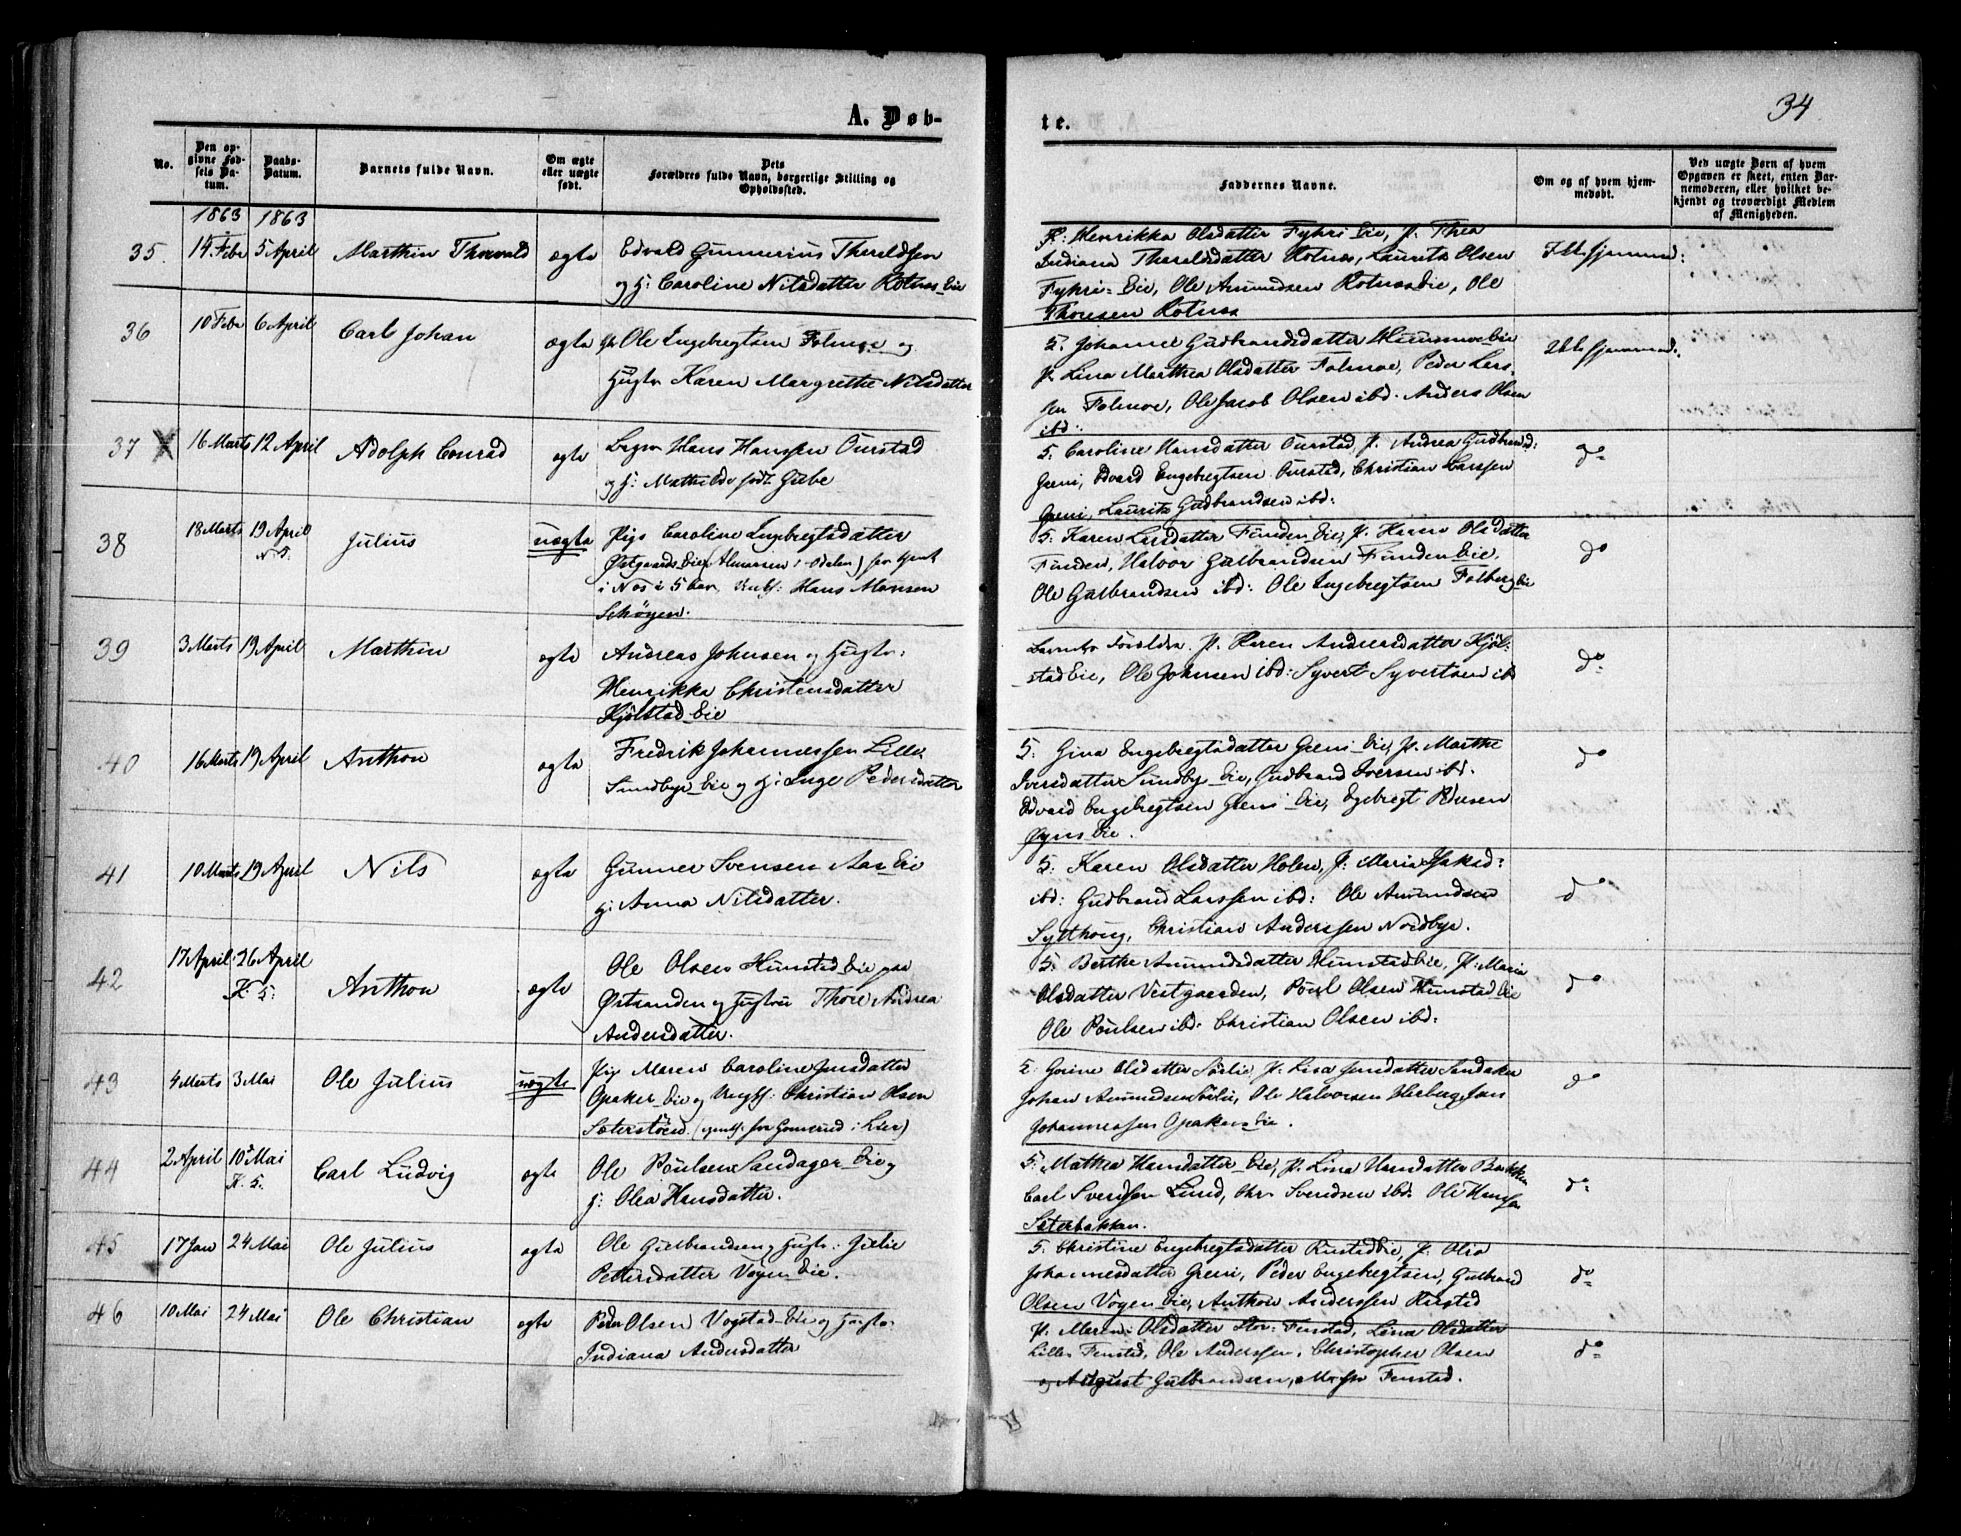 A. Døb-
te.
34
No.
Den op-
givne Fød-
sels Da-
tum.
Daabs-
Datum.
Barnets fulde Navn.
Om ægte
eller uægte
født.
Dets
Forældres fulde Navn, borgerlige Stilling og
Opholdssted.
Faddernes Navne.
Om og af hvem hjem-
medøbt.
Ved uægte Børn af hvem
Opgaven er skeet, enten Bar-
nemoderen, eller hvilket be-
kjendt og troværdigt Medlem
af Menigheden.
1863 1863
35. 14 Febr 5 April Marthin Thorvald ægte
Edvald Gunnerius Thoraldsen
og H: Caroline Nilsdatter Rotnes Eie
F: Henrikka Olsdatter Fyhri Eie, P. Thea
Indiana Thoraldsdatter Rotnes, Laurits Olsen
Fyhri-Eie, Ole Amundsen Rotnes Eie, Ole
Thoresen Rotnes
36 10 Febr 6 April Carl Johan ægte
Ole Engebregtsen Folmoe og
Hustr Karen Margrethe Nilsdatter
P. Lina Marthea Olsdatter Folmoe, Peder Lars-
sen Folmoe, Ole Jacob Olsen ibd. Anders Olsen
ibd:
37 16 Marts 12 April Adolph Conrad ægte
Hans Hanssen Ourstad
og H: Mathilde født Gübe
5. Caroline Hansdatter Ourstad, P. Andrea Gudbrandsd:
Greni, Edvard Engebregtsen Ourstad, Christian Larssen
Greni, Laurits Gudbrandsen ibd:
do
38 18 Marts 19 April Julius uægte
N.S.
Pige Caroline Engebregtsdatter
i Nes i 5 Uger, Ungk: Hans Monsen
Schøyen.
5: Karen Larsdatter Funden Eie, P. Maren Olsdatter
Funden, Halvor Gulbrandsen Funden Eie,
Ole Gulbrandsen ibd: Ole Engebregtsen Folberg Eie
do
39 3 Marts 19 April Marthin ægte
Andreas Johnsen og Hustr:
Henrikka Christensdatter
Hjølstad Eie
Barnets Forældre. P. Karen Andreasdatter Hjøl-
stad Eie, Ole Johnsen ibd: Syvert Syvertsen ibd
do
40 16 Marts 19 April Anthon ægte
Fredrik Johannessen Lille
Sundbye Eie og H: Inge Pedersdatter
5: Gina Engebregtsdatter Greni Eie, P. Marthe
Iversdatter Sundby Eie, Gudbrand Iversen ibd.
Edvard Engebregtsen Greni Eie, Egebregt
do
41 10 Marts 19 April Nils ægte
Gunner Svensen Aas Eie
H: Anna Nilsdatter.
5: Karen Olsdatter Holen, P. Maria Isaksd:
ibd: Gudbrand Larssen ibd: Ole Amundsen
Christian Anderssen Nordbye.
do
42 17 April 26 April Anthon ægte
K. 5:
Ole Olsen Hunstad Eie paa
og Hustru Thore Andrea
Andersdatter.
5: Berthe Amundsdatter Hunstad Eie, P: Maria
Olsdatter Vestgaarden, Poul Olsen Hunstad Eie
Ole Poulsen ibd: Christian Olsen ibd:
do
43 4 Marts 3 Mai Ole Julius uægte
Pige Maren Caroline Jensdatter
Opaker Eie og Ungk: Christian Olsen
i Lier)
5: Gorine Olsdatter Sørlie, P. Lisa Jensdatter
Johan Amundsen Sørlie, Ole Halvorsen Herberg, Jens
Johannessen Opaker Eie.
do
44 2 April 10 Mai Carl Ludvig ægte
K. 5.
Ole Poulsen Sandager Eie og
H: Olea Hansdatter.
5: Mathea Hansdatter Eie, P. Lina Hansdatter Bakken
Carl Svendsen Lund, Chr. Svendsen ibd. Ole Hansen
Sæterbakken.
do
45 17 Jan 24 Mai Ole Julius ægte
Ole Gulbrandsen og Hustr: Gulie
Pettersdatter Vogen Eie.
5: Christine Engebregtsdatter Rustad Eie, P. Olia
Johannesdatter Greni, Peder Engebregtsen, Gulbrand
Olsen Vogen Eie, Anthon Anderssen Rustad
do
46 10 Mai 24 Mai Ole Christian ægte
Peder Olsen Vogstad Eie og Hustr:
Indiana Andersdatter
P. Maren Olsdatter Stor-Fenstad, Lina Olsdatter
Lille Fenstad, Ole Anderssen, Christopher Olsen
og August Gulbrandsen, Fenstad.
do